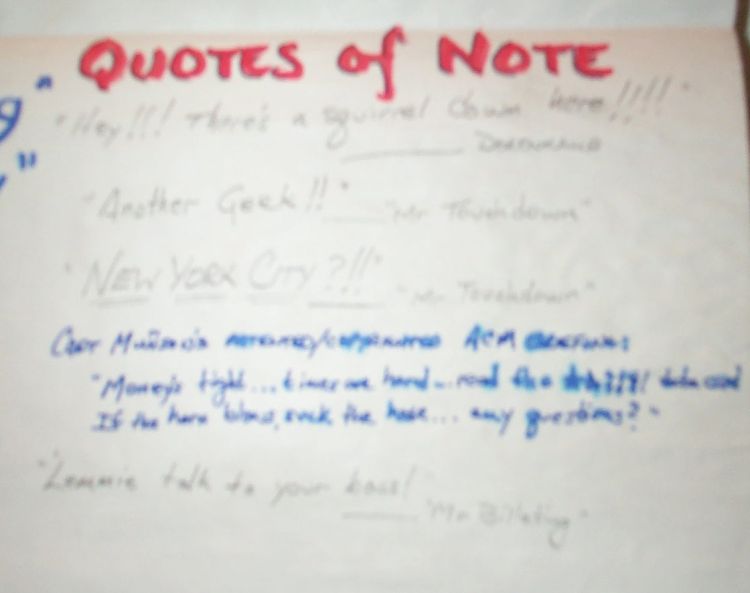 QUOTES of NOTE
"Hey!!! There's a squirrel down here!!!!"
"Another Geek!!"
"Mr Touchdown"
"NEW YORK CITY?!!"
"Mr Touchdown"
ACM
"Money's tight... times are hard... read the
If the horn blows, suck the hose... any questions?"
"Lemmie talk to your boss!
"Mr Billeting"